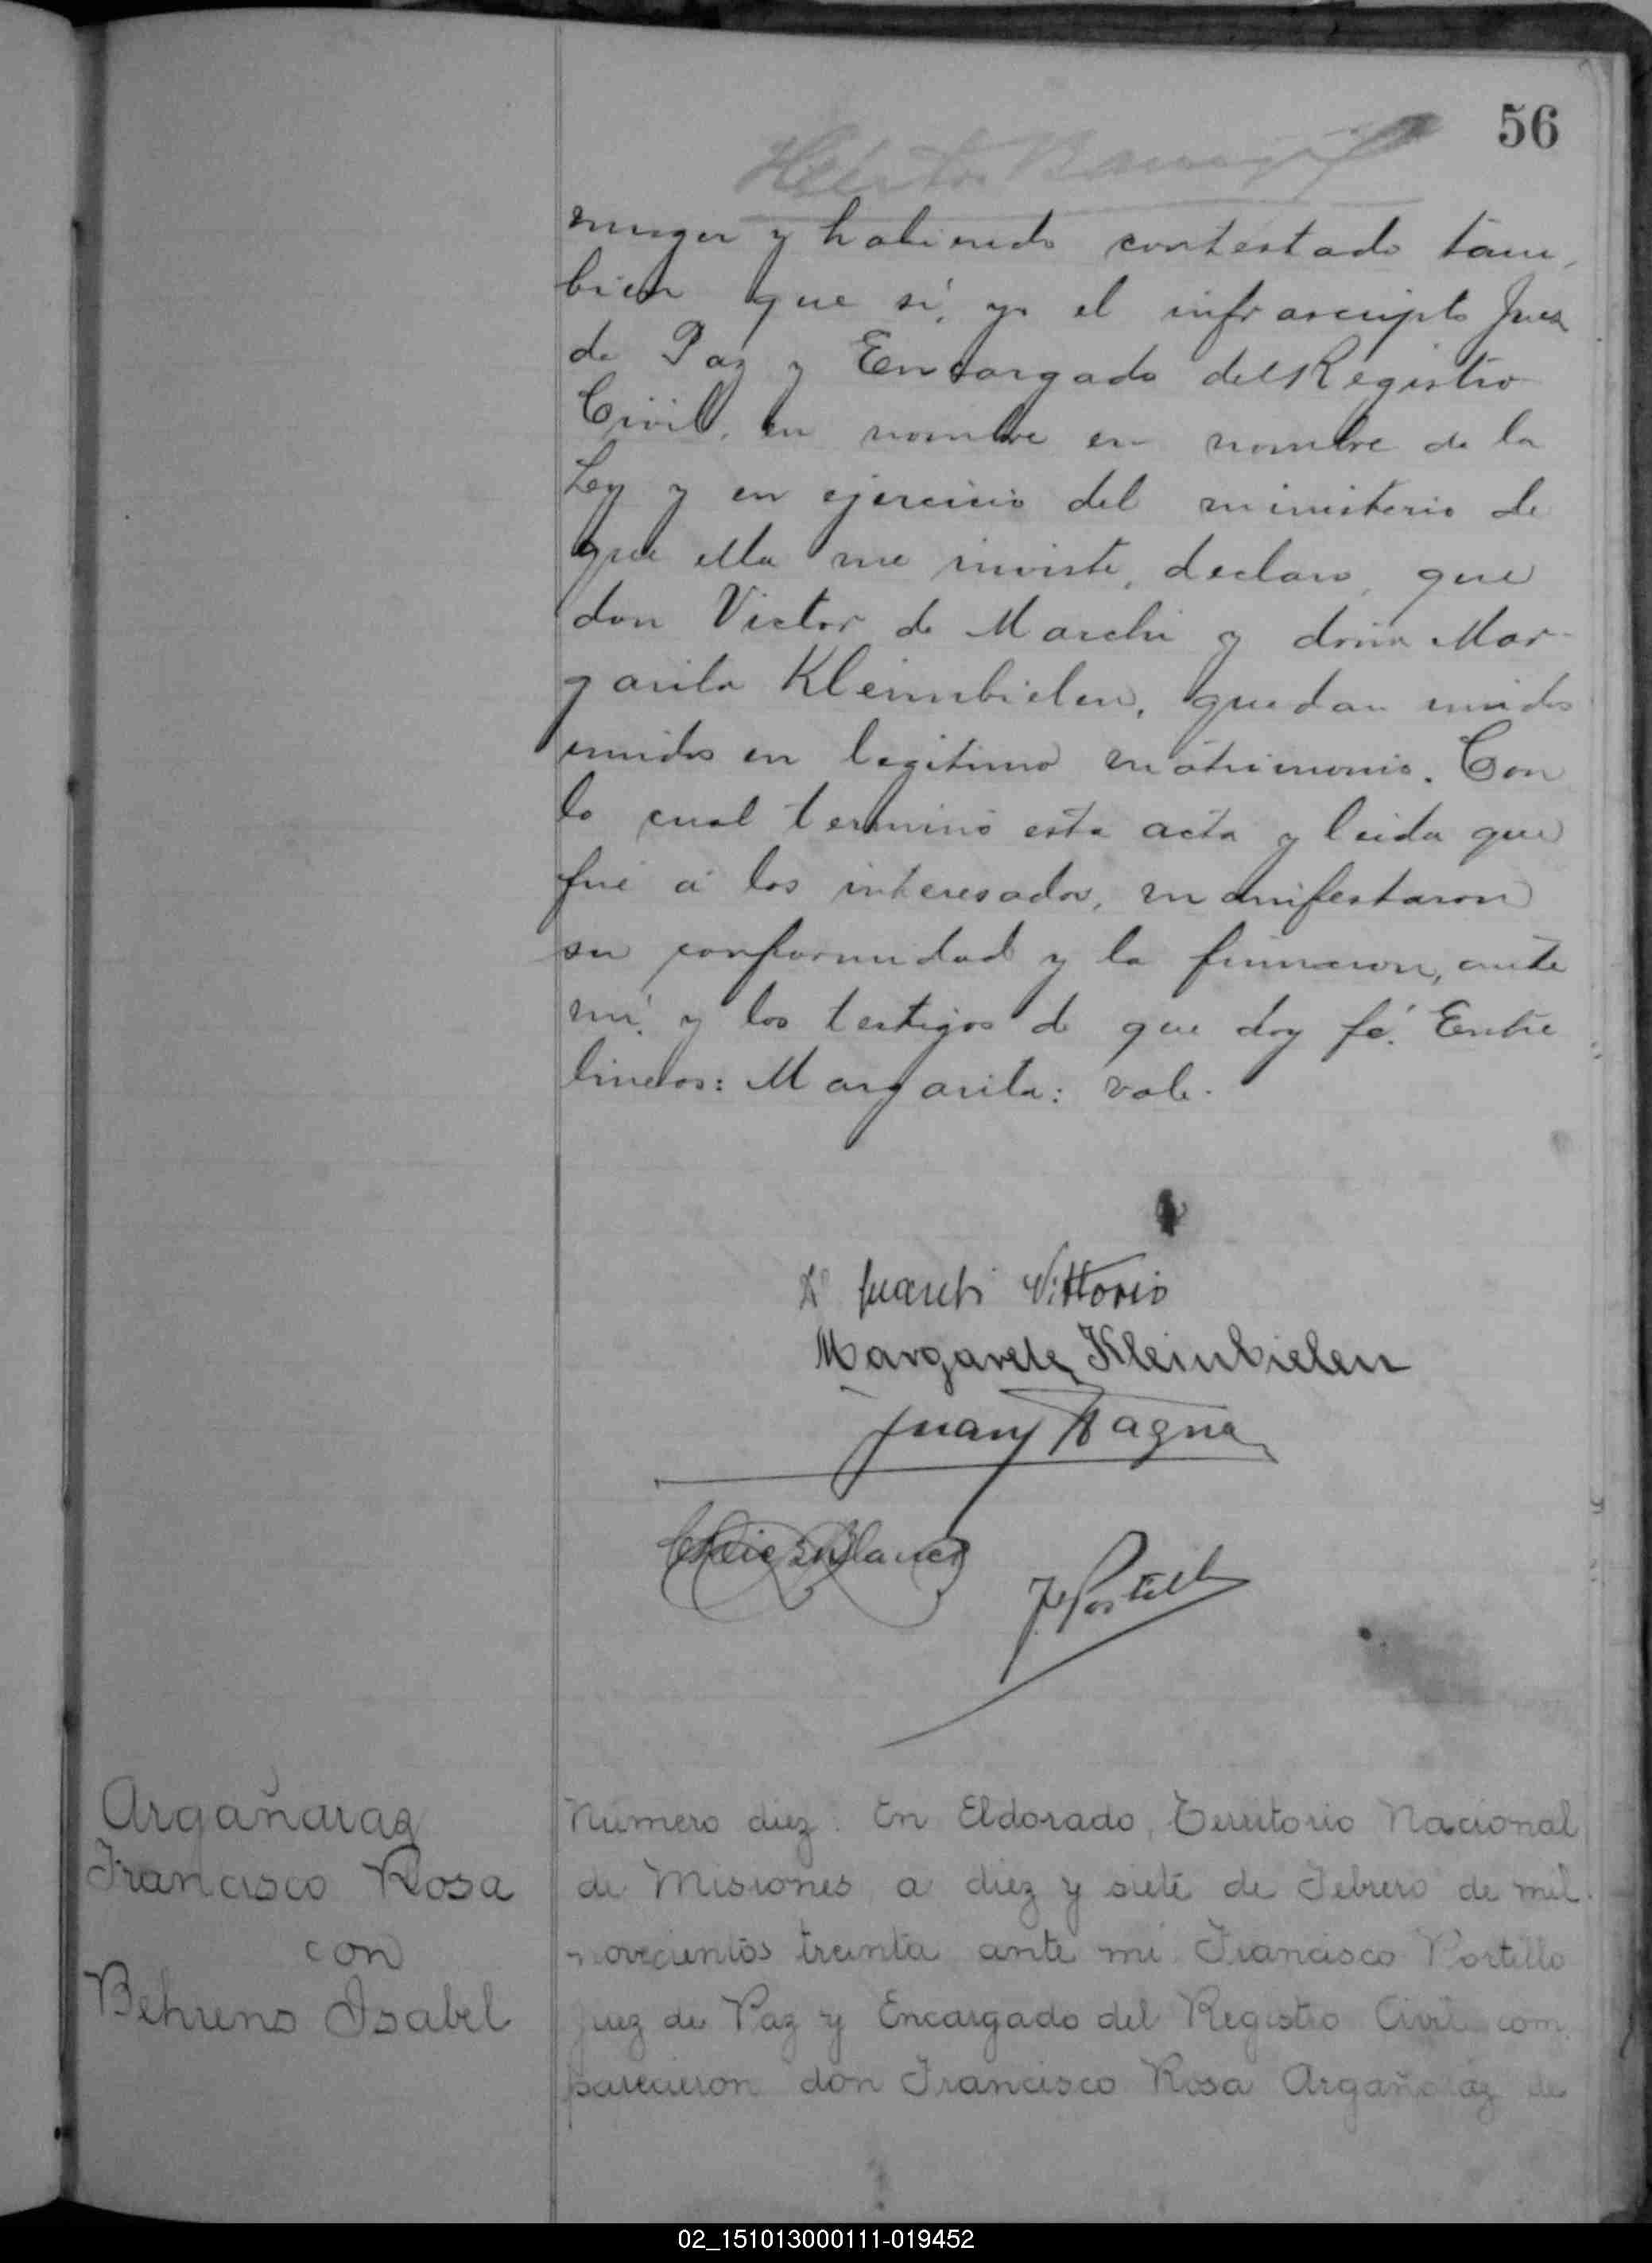 56
muger y habiendo contestado tam-
bien que sí, yo el infrascripto Juez
de Paz y Encargado del Registro
Civil, en nombre en nombre de la
Ley y en ejercicio del ministerio de
que ella me inviste, declaro, que
don Victor de Marchi y doña Mar-
garita Kleinnbielen, quedan unidos
unidos en legitimo matrimonio. Con
lo cual terminó esta acta y leida que
fué á los interesados, manifestaron
su conformidad y la firmaron, ante
mí y los testigos de que doy fé. Entre
lineas: Margarita: vale.
De Marchi Vittorio
Margarete Kleinbielen
Juan Wagner
Blanco
F. Portillo
Argañaraz
Francisco Rosa
con
Behrens Isabel
Número diez. En Eldorado, Territorio Nacional
de Misiones, a diez y siete de Febrero de mil
novecientos treinta ante mí Francisco Portillo
Juez de Paz y Encargado del Registro Civil com-
parecieron don Francisco Rosa Argañaráz de
02_151013000111-019452